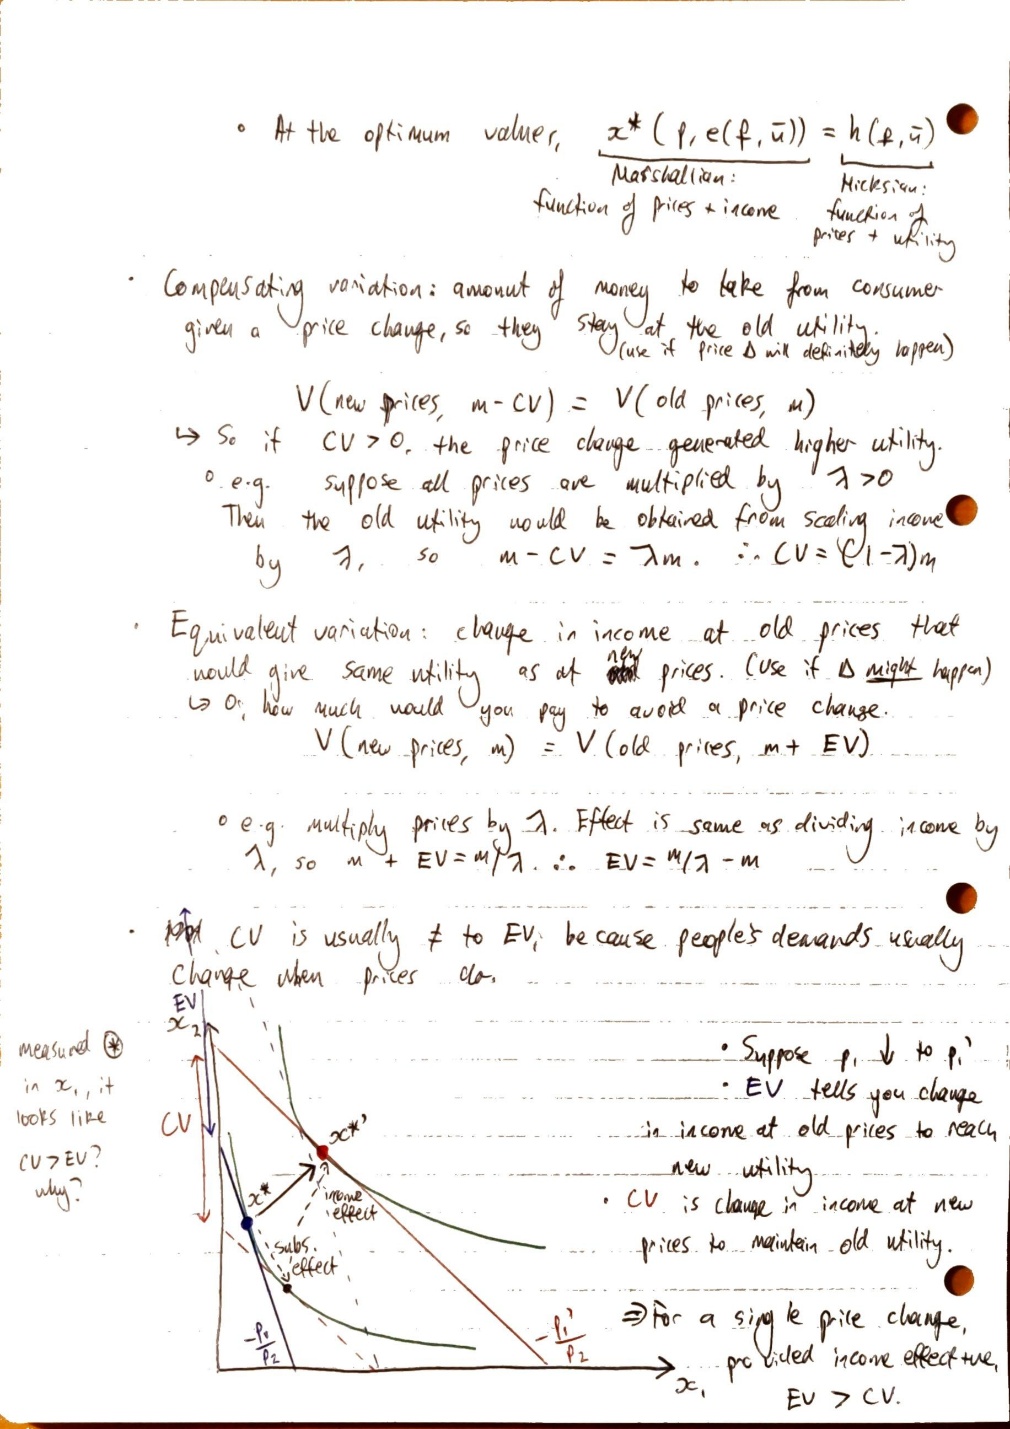 ◦ At the optimum values, x* (p, e(p, ū)) = h(p, ū)
Marshallian: Hicksian:
function of prices + income function of
prices + utility
· Compensating variation: amount of money to take from consumer
given a price change, so they stay at the old utility.
(use if price Δ will definitely happen)
V(new prices, m - CV) = V(old prices, m)
↳ So if CV > 0, the price change generated higher utility.
◦ e.g. suppose all prices are multiplied by λ > 0
Then the old utility would be obtained from scaling income
by λ, so m - CV = λm. ∴ CV = (1-λ)m
· Equivalent variation: change in income at old prices that
would give same utility as at new prices. (Use if Δ might happen)
↳ Or, how much would you pay to avoid a price change.
V(new prices, m) = V(old prices, m + EV)
◦ e.g. multiply prices by λ. Effect is same as dividing income by
λ, so m + EV = m/λ. ∴ EV = m/λ - m
· CV is usually ≠ to EV, because people's demands usually
change when prices do.
EV
x₂
measured ⊛
in x₁, it
looks like
CV > EV?
why?
CV
x*'
x*
income
effect
subs.
effect
-p₁/p₂
-p₁'/p₂
x₁
· Suppose p₁ ↓ to p₁'
· EV tells you change
in income at old prices to reach
new utility
· CV is change in income at new
prices to maintain old utility.
⇒ For a single price change,
provided income effect +ve,
EV > CV.